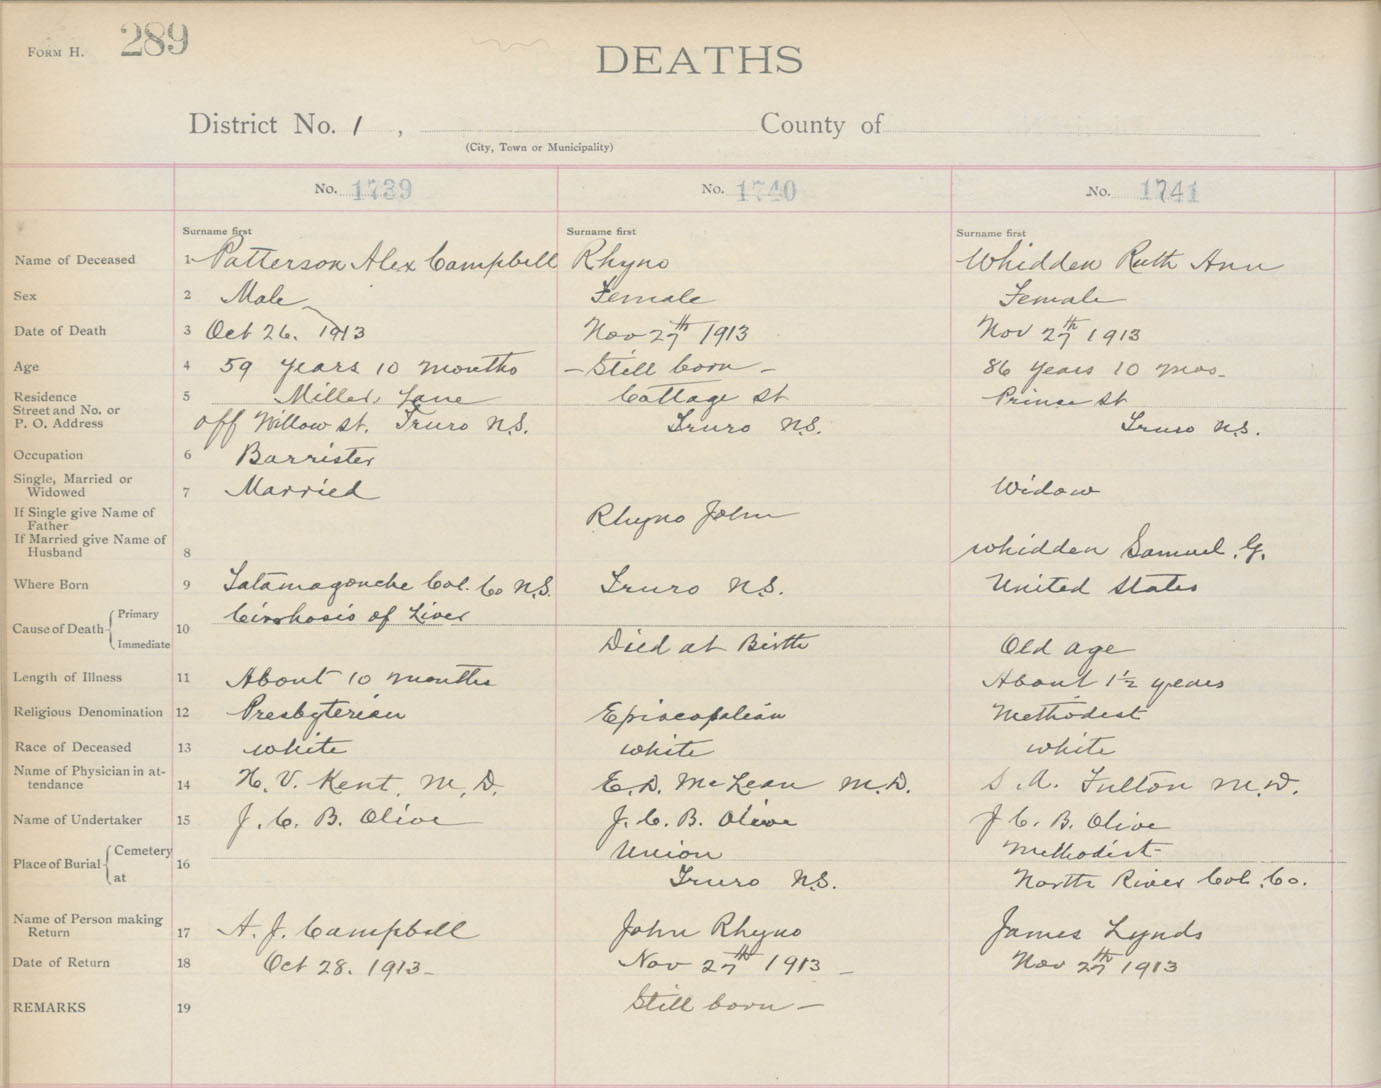 FORM H. 289
DEATHS
District No. 1 , County of
(City, Town or Municipality)
No. 1739 No. 1740 No. 1741
Surname first Surname first Surname first
Name of Deceased 1 Patterson Alex Campbell Rhyno Whidden Ruth Ann
Sex 2 Male Female Female
Date of Death 3 Oct 26. 1913 Nov 27th 1913 Nov 27th 1913
Age 4 59 years 10 months - Still born - 86 years 10 mos-
Residence 5 Miller, Lane Cottage St Prince St
Street and No. or
P. O. Address off Willow St. Truro N.S. Truro N.S. Truro N.S.
Occupation 6 Barrister
Single, Married or
Widowed 7 Married Widow
If Single give Name of
Father Rhyno John
If Married give Name of
Husband 8 Whidden Samuel G.
Where Born 9 Tatamagouche Col. Co N.S. Truro N.S. United States
Cause of Death { Primary Cirrhosis of Liver
10
Immediate Died at Birth Old age
Length of Illness 11 About 10 months About 1½ years
Religious Denomination 12 Presbyterian Episcopalian Methodist
Race of Deceased 13 white white white
Name of Physician in at-
tendance 14 H. V. Kent, M.D. E. D. McLean M.D. S. A. Fulton M.D.
Name of Undertaker 15 J. C. B. Olive J. C. B. Olive J C. B. Olive
Place of Burial { Cemetery 16 Union Methodist
at Truro N.S. North River Col. Co.
Name of Person making
Return 17 A. J. Campbell John Rhyno James Lynds
Date of Return 18 Oct 28. 1913- Nov 27th 1913 - Nov 27th 1913
REMARKS 19 Still born -